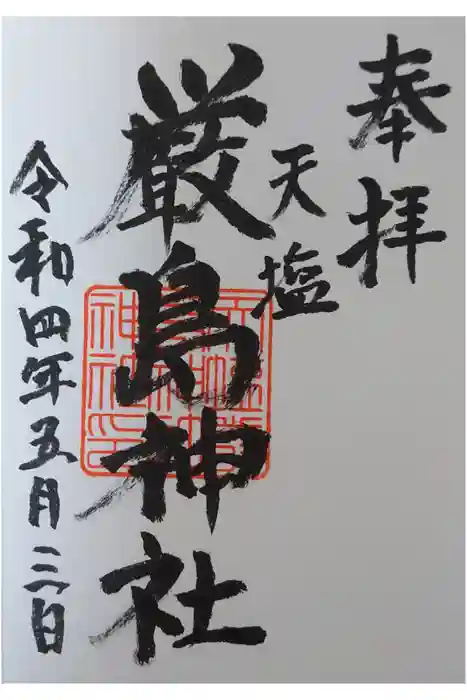 奉拝
天塩
厳島神社
令和四年五月三日